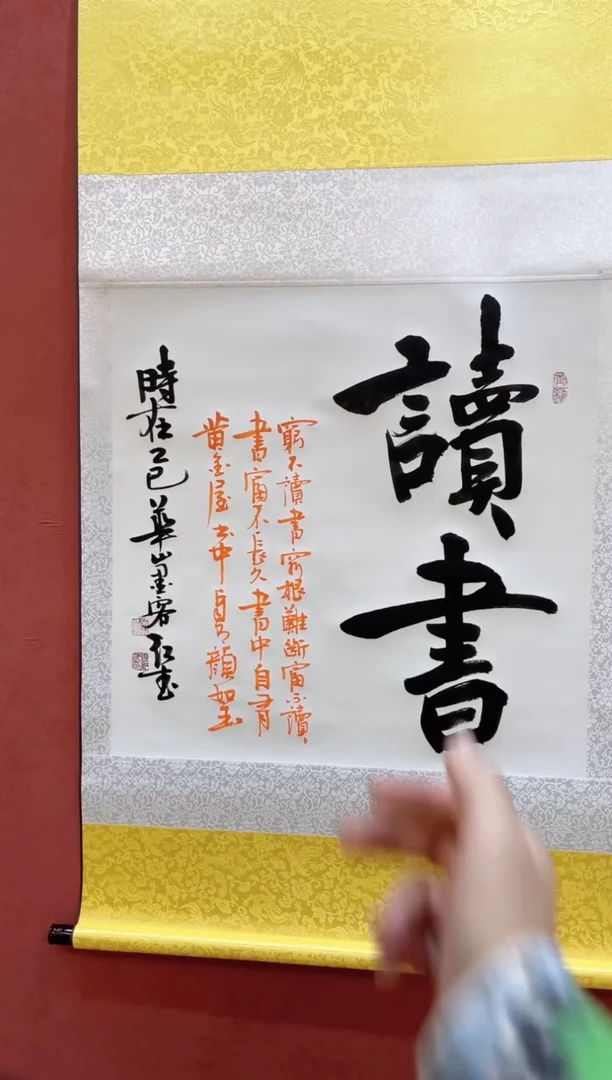 讀書
窮不讀書窮根難斷富不讀
書富不長久書中自有
黄金屋书中自有顏如玉
時在乙巳華山墨客